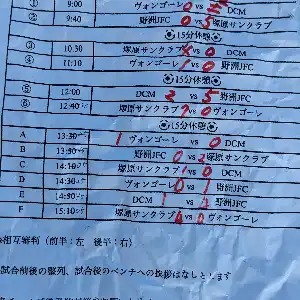 ① 9:00 ヴォンゴーレ 0 vs 5 DCM
② 9:40 野洲JFC 0 vs 5 塚原サンクラブ
⚽15分休憩⚽
③ 10:30 塚原サンクラブ vs 0 DCM
④ 11:10 ヴォンゴーレ 1 vs 0 野洲JFC
⚽15分休憩⚽
⑤ 12:00 DCM 2 vs 5 野洲JFC
⑥ 12:40 塚原サンクラブ vs 0 ヴォンゴーレ
⚽15分休憩⚽
A 13:30 1 ヴォンゴーレ vs 0 DCM
B 13:50 野洲JFC 0 vs 2 塚原サンクラブ
C 14:10 塚原サンクラブ 1 vs 0 DCM
D 14:30 ヴォンゴーレ 0 vs 1 野洲JFC
E 14:50 DCM 1 vs 2 野洲JFC
F 15:10 塚原サンクラブ vs 0 ヴォンゴーレ
相互審判（前半：左 後半：右）
試合前後の整列、試合後のベンチへの挨拶はなしとします